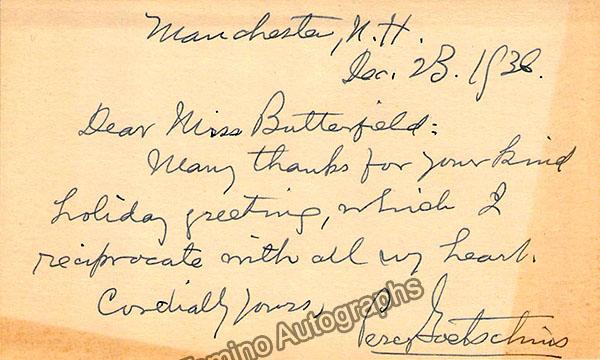 Manchester, N.H.
Dec. 23. 1938.
Dear Miss Butterfield:
Many thanks for your kind
holiday greeting, which I
reciprocate with all my heart.
Cordially yours,
Percy Goetschius
Tamino Autographs